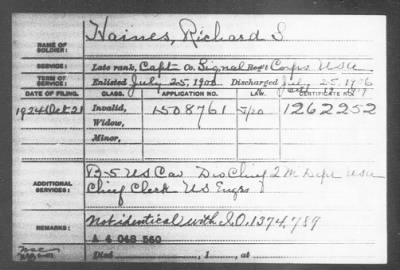 NAME OF SOLDIER: Haines, Richard S
SERVICE: Late rank, Capt Co. Signal Reg't Corps USA
TERM OF SERVICE: Enlisted July 25, 1900 Discharged July 25, 1906
DATE OF FILING. CLASS. APPLICATION NO. LAW. CERTIFICATE NO.
1924 Oct 21 Invalid, 1508761 5/20 1262252
Widow,
Minor,
ADDITIONAL SERVICES: B-5 US Cav Div Chief 2 M Dept USA
Chief Clerk US Engrs
REMARKS: Not identical with I.O. 1374,789
A 4 048 560
Died , 1 , at